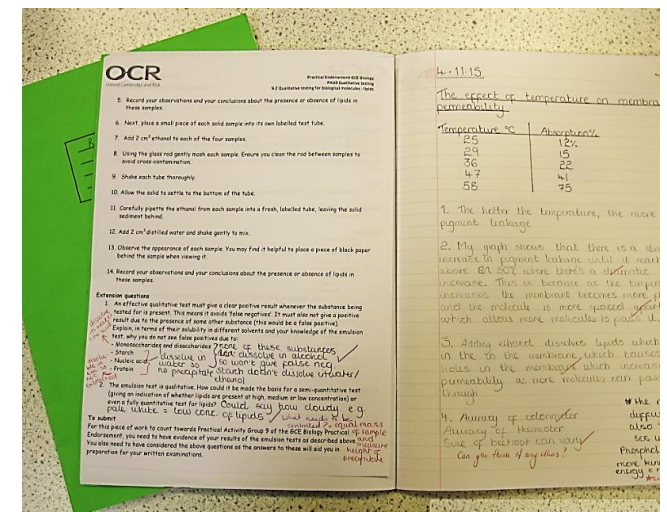 OCR
Oxford Cambridge and RSA
Practical Endorsement GCE Biology
PAG9 Qualitative testing
9.2 Qualitative testing for biological molecules - lipids
5. Record your observations and your conclusions about the presence or absence of lipids in
these samples.
6. Next, place a small piece of each solid sample into its own labelled test tube.
7. Add 2 cm³ ethanol to each of the four samples.
8. Using the glass rod gently mash each sample. Ensure you clean the rod between samples to
avoid cross-contamination.
9. Shake each tube thoroughly.
10. Allow the solid to settle to the bottom of the tube.
11. Carefully pipette the ethanol from each sample into a fresh, labelled tube, leaving the solid
sediment behind.
12. Add 2 cm³ distilled water and shake gently to mix.
13. Observe the appearance of each sample. You may find it helpful to place a piece of black paper
behind the sample when viewing it.
14. Record your observations and your conclusions about the presence or absence of lipids in
these samples.
Extension questions
1. An effective qualitative test must give a clear positive result whenever the substance being
tested for is present. This means it avoids 'false negatives'. It must also not give a positive
result due to the presence of some other substance (this would be a false positive).
Explain, in terms of their solubility in different solvents and your knowledge of the emulsion
test, why you do not see false positives due to:
- Monosaccharides and disaccharides none of these substances
- Starch dissolve in alcohol
- Nucleic acid dissolve in water so so won't give false neg
- Protein no precipitate starch doesn't dissolve in water/
ethanol
2. The emulsion test is qualitative. How could it be made the basis for a semi-quantitative test
(giving an indication of whether lipids are present at high, medium or low concentration) or
even a fully quantitative test for lipids? Could say how cloudy e.g
pale white = low conc. of lipids what needs to be
controlled? - equal mass
of sample
and
measure
height of
precipitate
To submit
For this piece of work to count towards Practical Activity Group 9 of the GCE Biology Practical
Endorsement, you need to have evidence of your results of the emulsion tests as described above
You also need to have considered the above questions as the answers to these will aid you in
preparation for your written examinations.
4.11.15
The effect of temperature on membra
permeability
Temperature °C Absorption %
25 12%
29 15
36 22
47 41
58 75
1. The hotter the temperature, the more
pigment leakage
2. My graph shows that there is a
increase in pigment leakage until it reach
above 50°C where there's a dramatic
increase. This is because as the tempe
increases the membrane becomes more
and the molecule is more spaced apart
which allows more molecules to pass
3. Adding ethanol dissolves lipids which
in the membrane which causes
holes in the membrane which increase
permeability as more molecules can pass
through
4. Accuracy of colorimeter
Accuracy of thermometer
Size of beetroot can vary
Can you think of any others?
the
diffu
also
Phosphol
more kin
energy